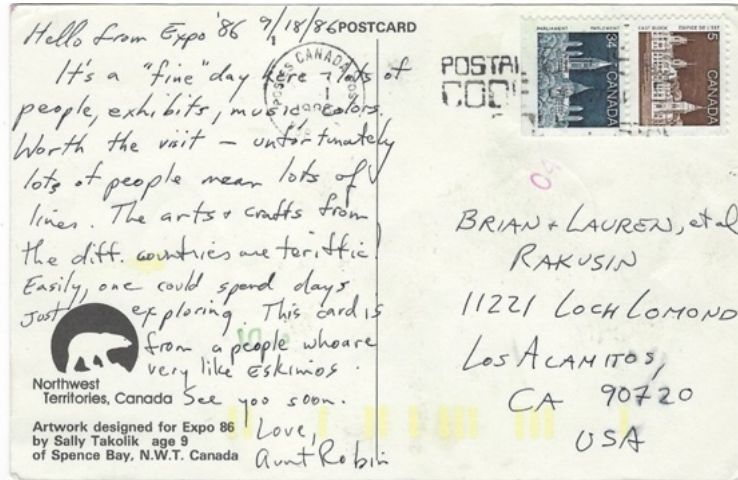 Hello from Expo '86 9/18/86
POSTCARD
It's a "fine" day here - lots of
people, exhibits, music, colors.
Worth the visit - unfortunately
lots of people mean lots of
lines. The arts + crafts from
the diff. countries are teriffic!
Easily, one could spend days
just exploring. This card is
from a people who are
very like Eskimos.
See you soon.
Love,
Aunt Robin
Northwest
Territories, Canada
Artwork designed for Expo 86
by Sally Takolik age 9
of Spence Bay, N.W.T. Canada
POSTES CANADA POST
POSTAL
CODE
PARLIAMENT PARLEMENT
34
CANADA
EAST BLOCK EDIFICE DE L'EST
5
CANADA
BRIAN + LAUREN, et al
RAKUSIN
11221 LOCH LOMOND
LOS ALAMITOS,
CA 90720
USA